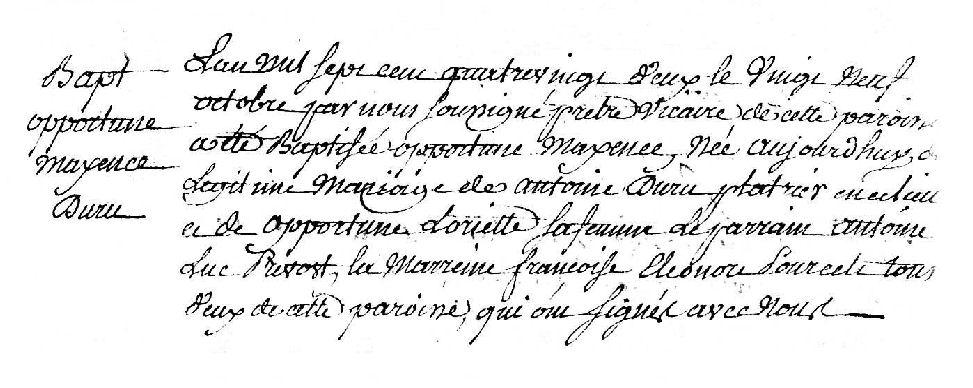 Bapt
opportune
maxence
Duru
L'an Mil sept cent quatrevingt deux le Vingt Neuf
octobre par nous soussigné prêtre Vicaire de cette paroisse
a été Baptisée opportune Maxence, Née aujourdhuy, d
Legitime Mariage de Antoine Duru platrier en ce lieu
et de opportune Loriette sa femme Le parrain antoine
Luc Prevost, la Marreine françoise Eleonore tous
deux de cette paroisse, qui ont signés avec Nous